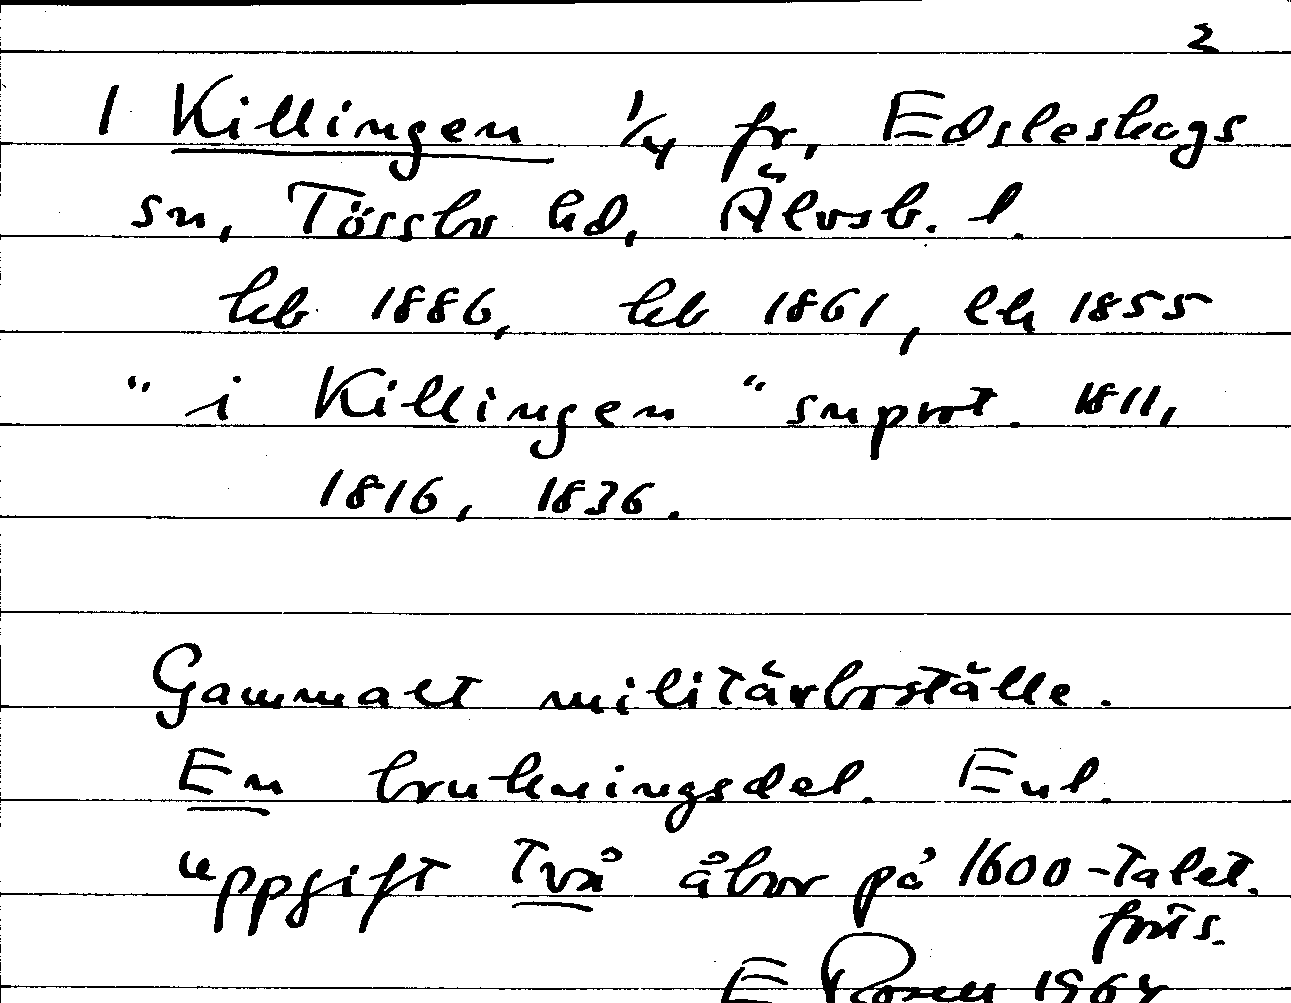 2
1 Killingen 1/4 fr, Edsleskogs
sn, Tössbo hd, Älvsb. l.
hb 1886, hb 1861, lh 1855
"i Killingen" snprot. 1811,
1816, 1836.
Gammalt militärboställe.
En brukningsdel. Enl.
uppgift två åbor på 1600-talet.
forts.
E Rosell 1964